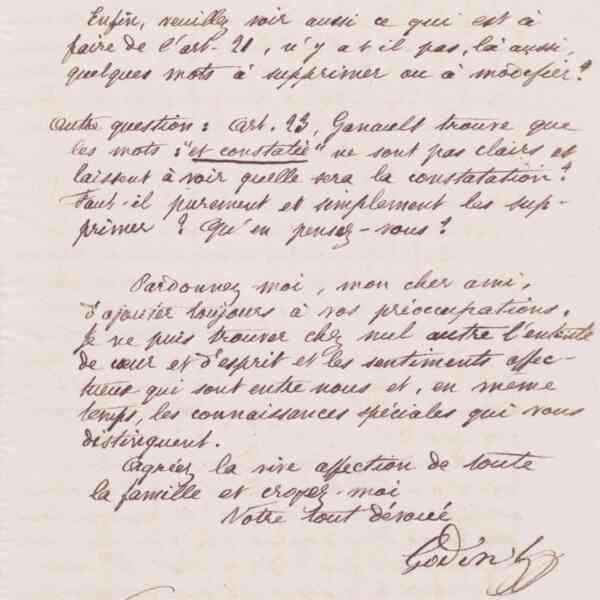 Enfin, veuillez voir aussi ce qui est à
faire de l'art. 21, n'y a t il pas, là aussi,
quelques mots à supprimer ou à modifier?
Autre question: Art. 23, Ganault trouve que
les mots: "et constatée" ne sont pas clairs et
laissent à voir quelle sera la constatation?
Faut-il purement et simplement les sup-
primer? Qu'en pensez-vous?
Pardonnez moi, mon cher ami,
d'ajouter toujours à vos préoccupations.
Je ne puis trouver chez nul autre l'entente
de cœur et d'esprit et les sentiments affec-
tueux qui sont entre nous et, en meme
temps, les connaissances spéciales qui vous
distinguent.
Agréez la vive affection de toute
la famille et croyez-moi
Votre tout dévoué
Godin